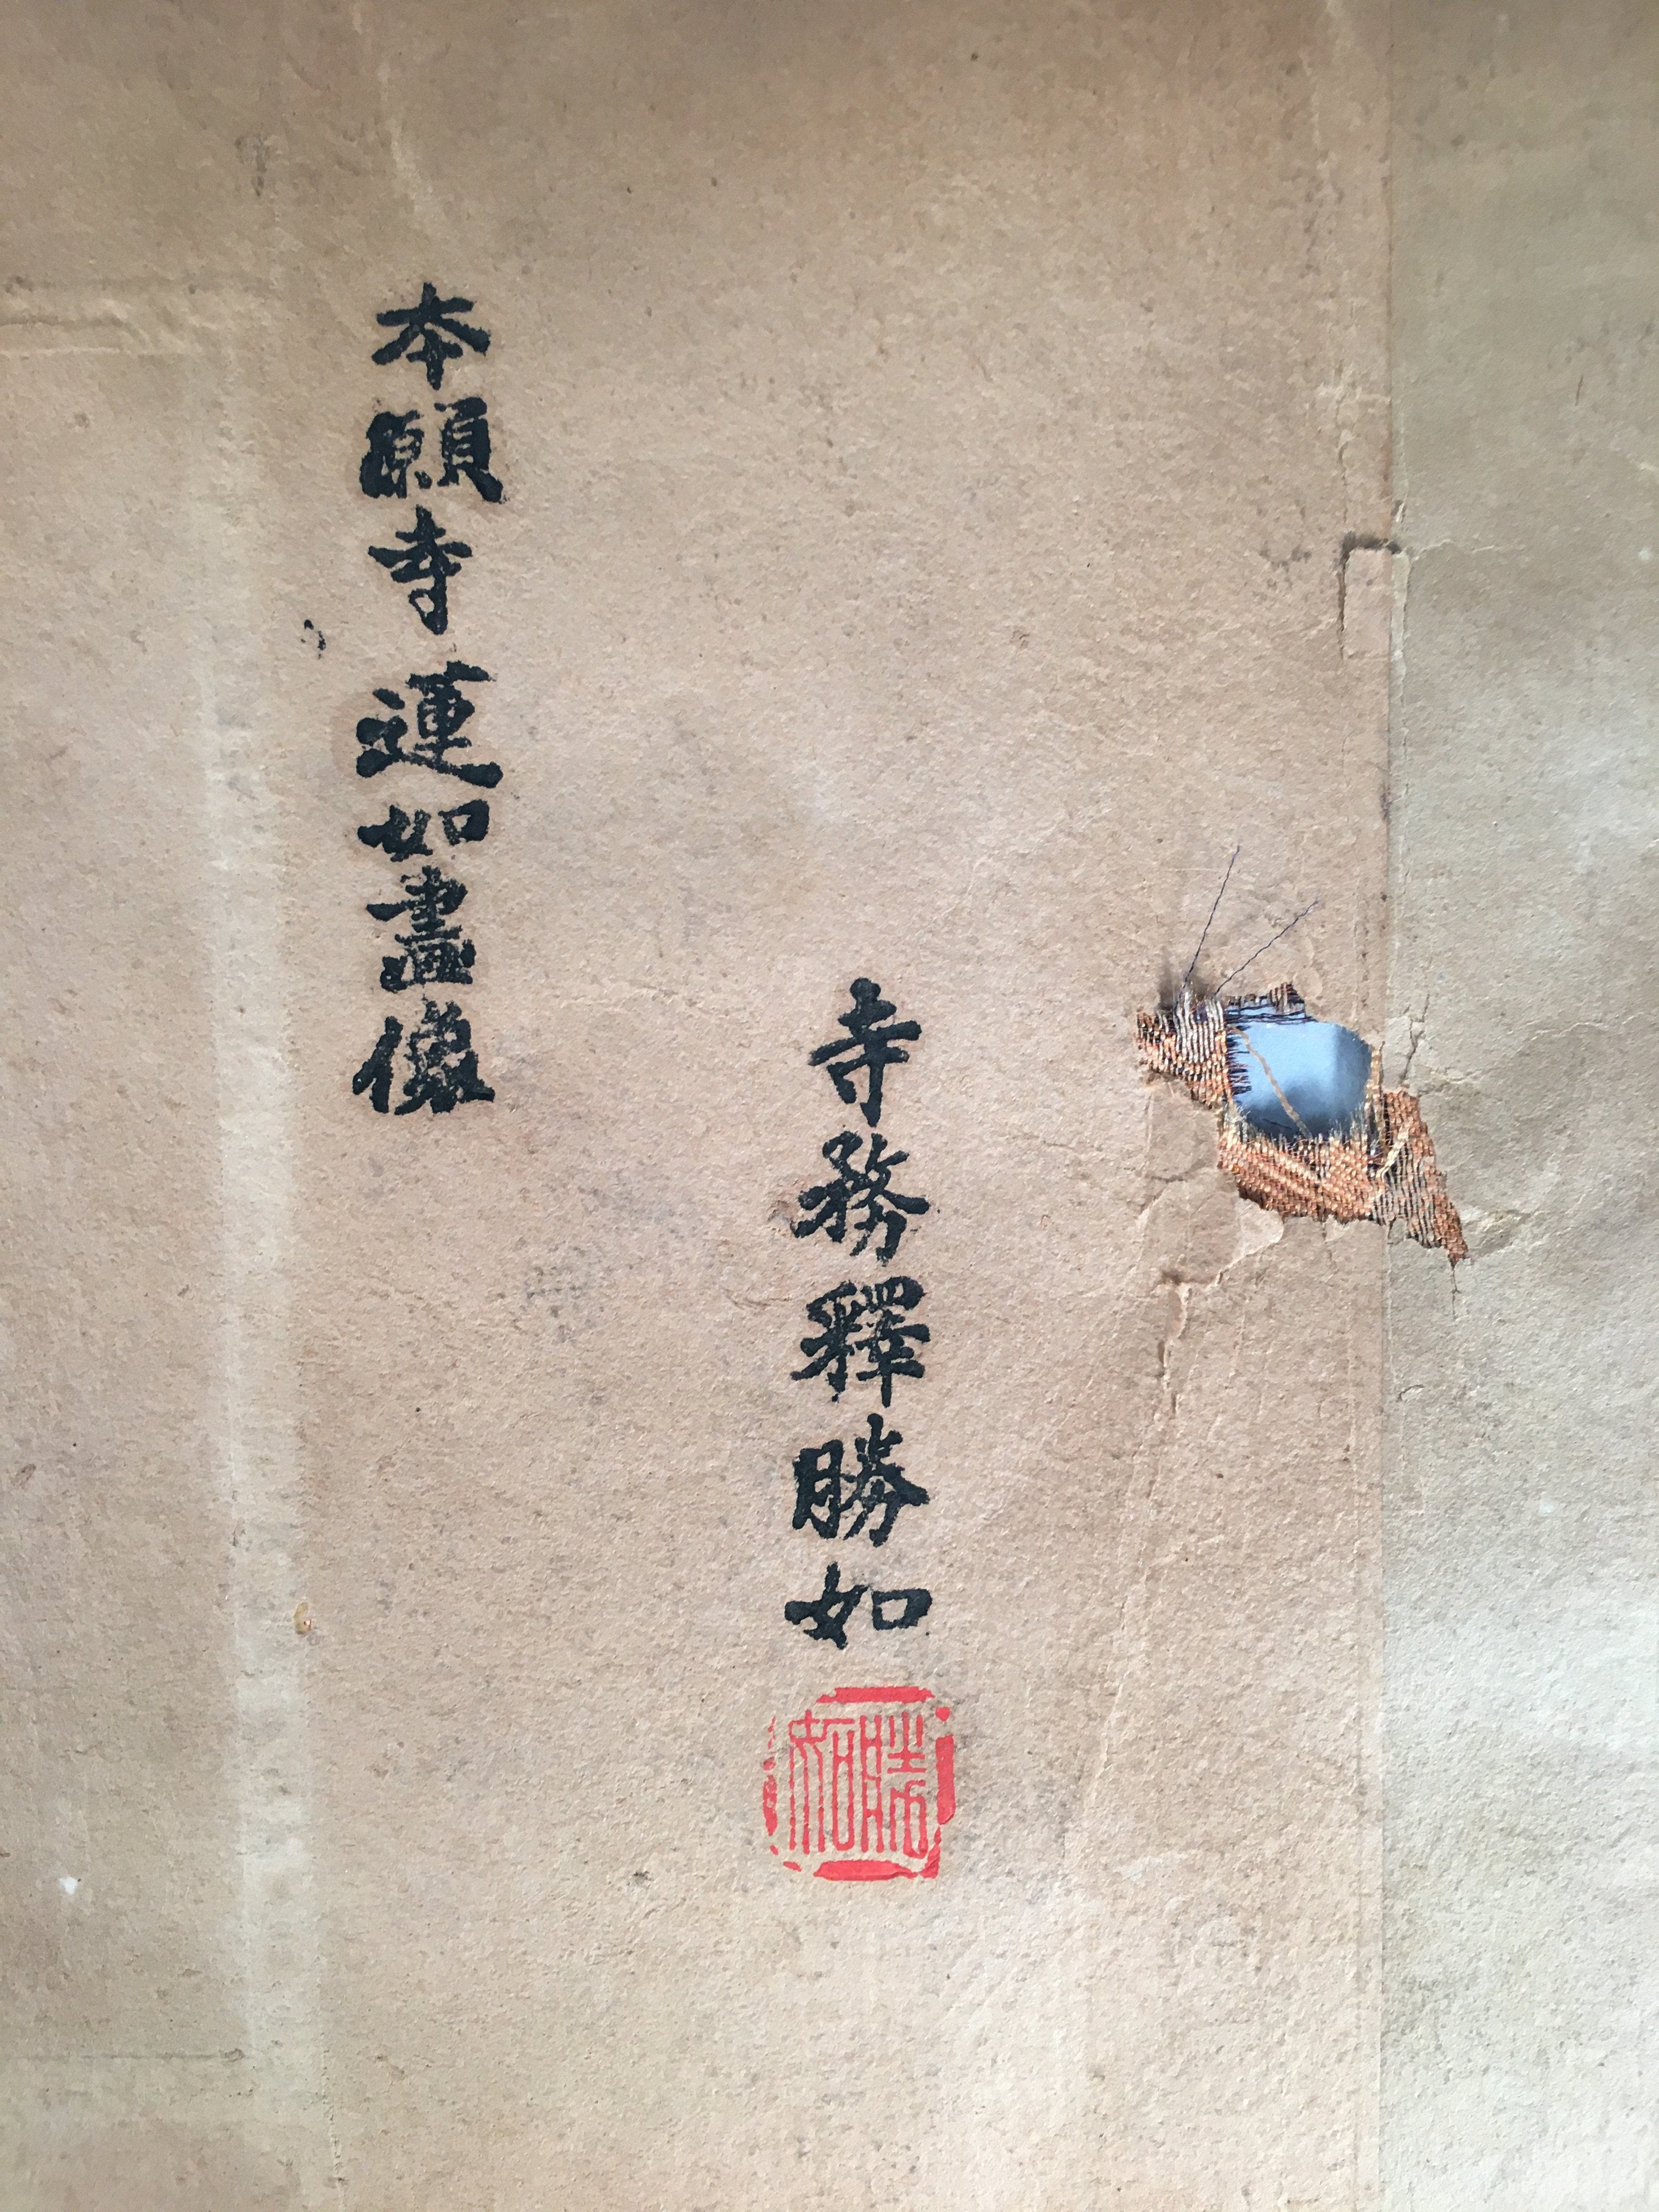 寺務釋勝如
勝如
本願寺蓮如畫像